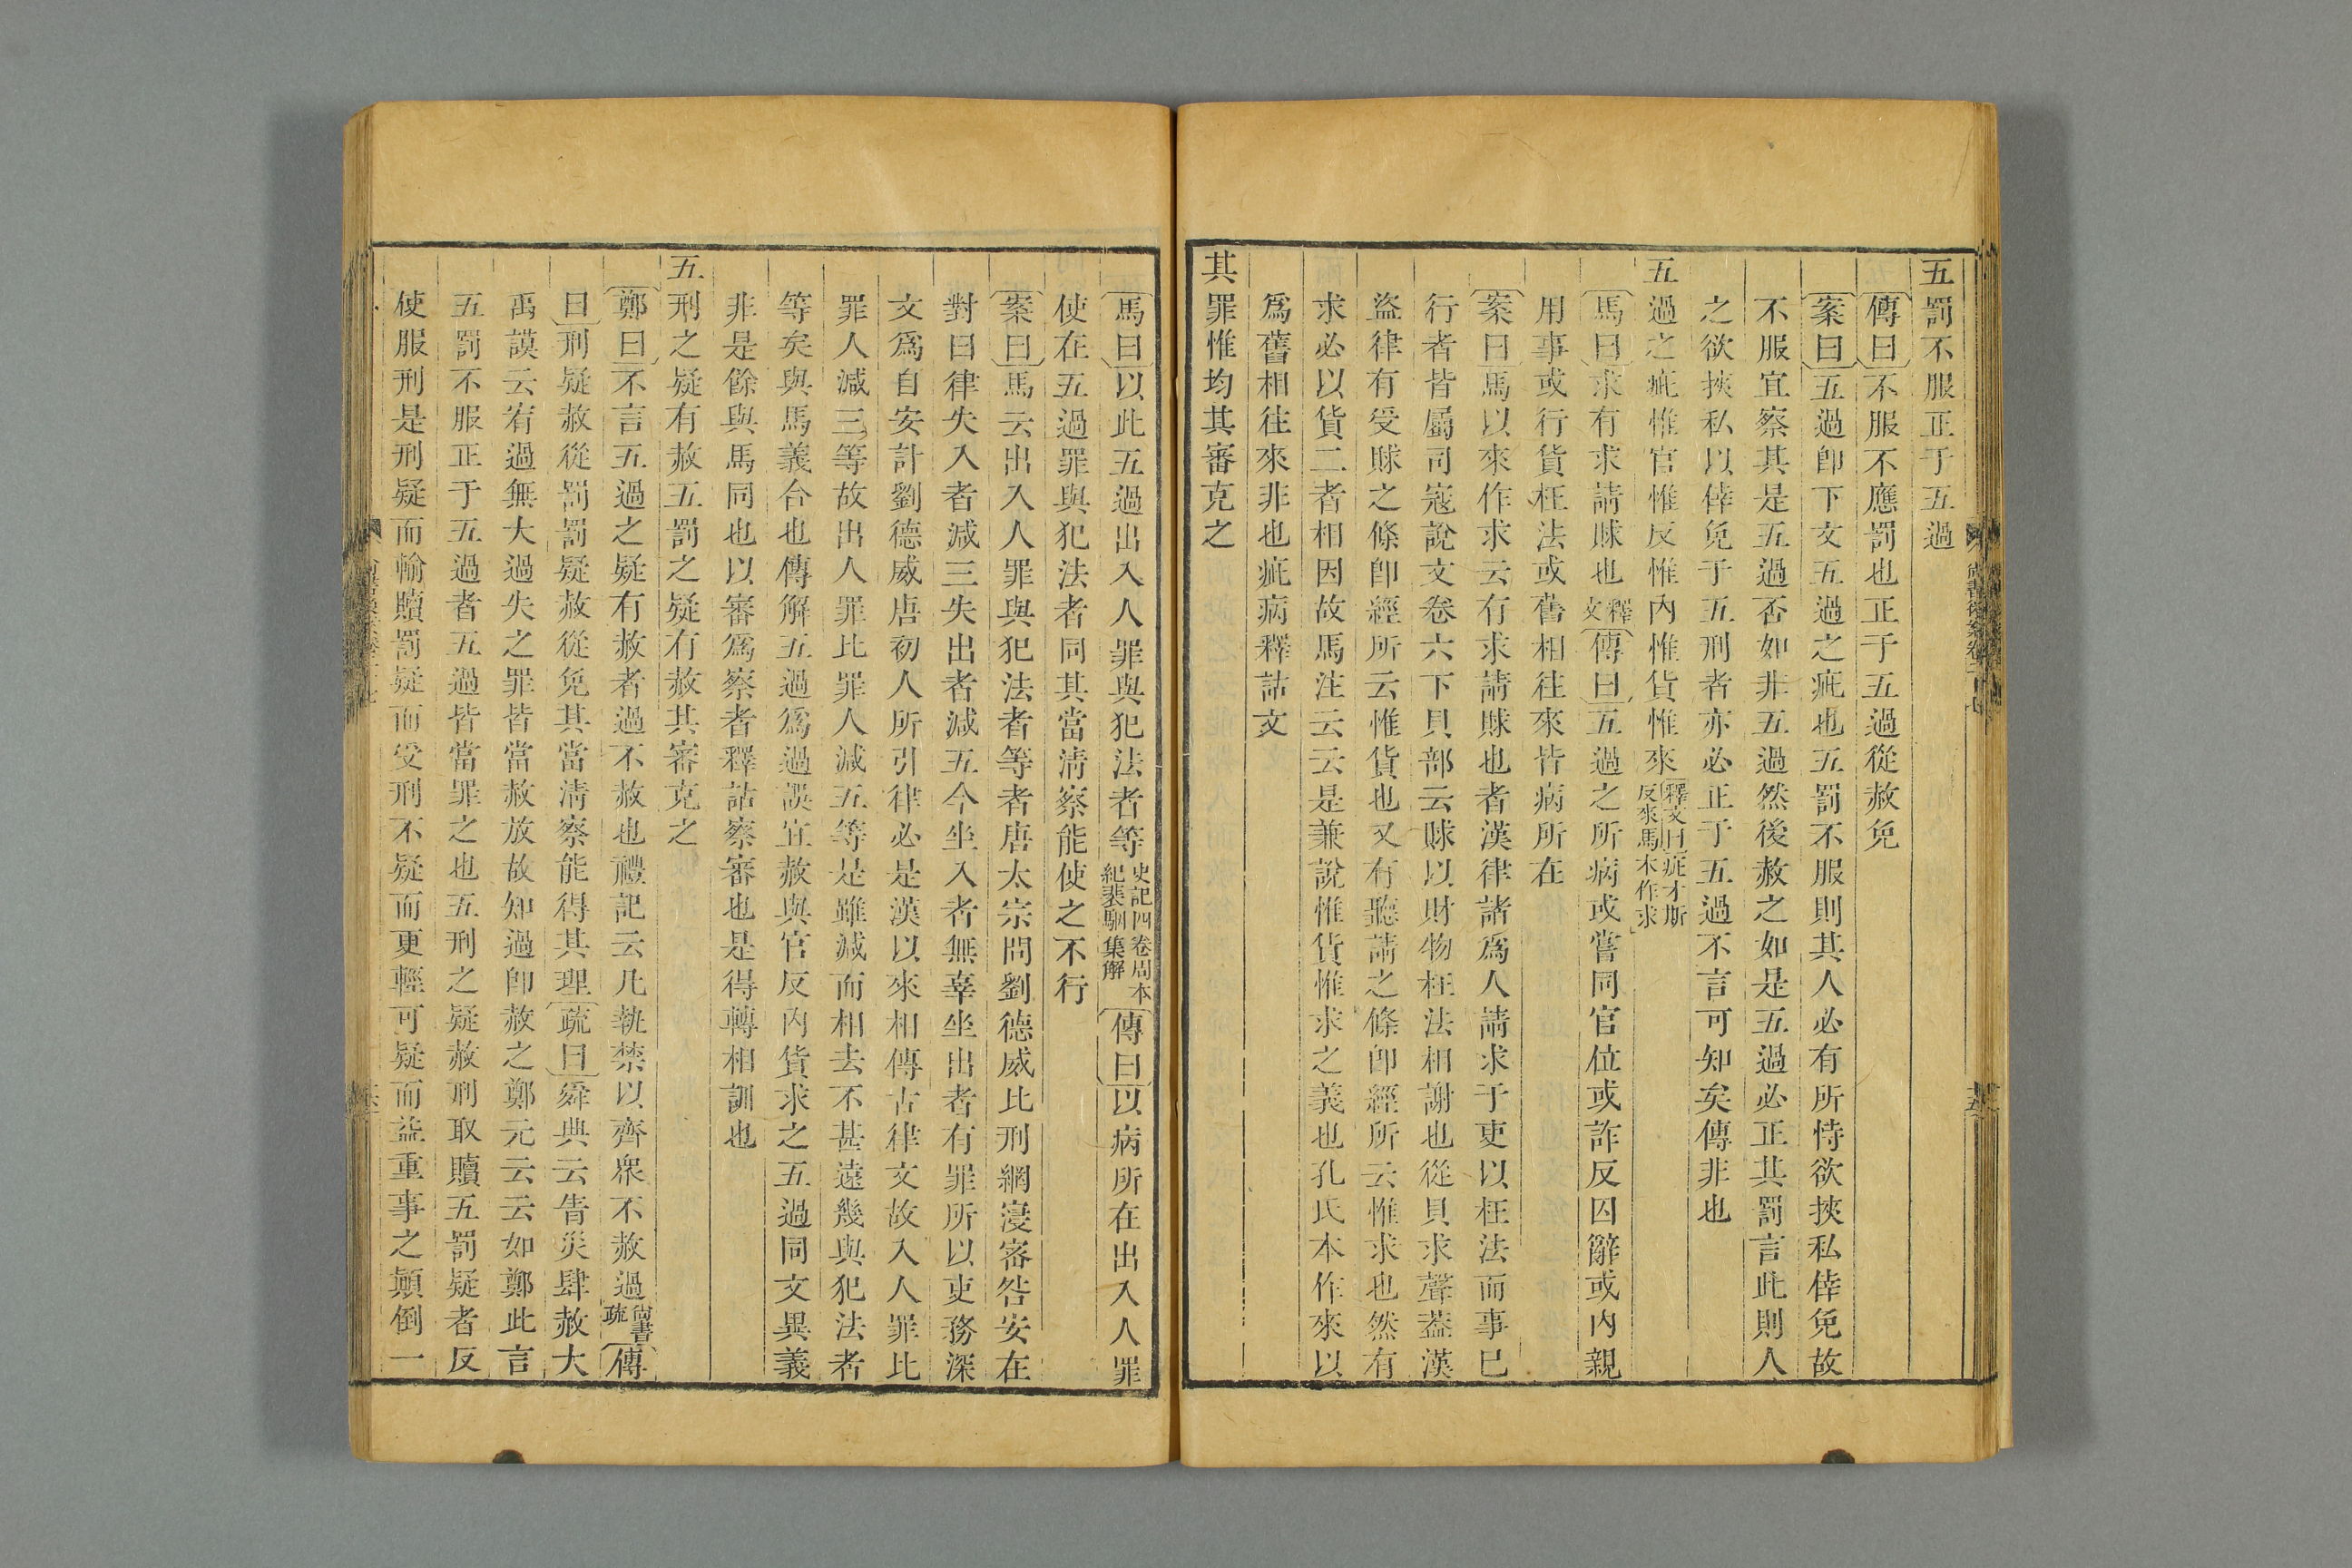 五罰不服正于五過
傳曰不服不應罰也正于五過從赦免
案曰五過卽下文五過之疵也五罰不服則其人必有所恃欲挾私倖免故
不服宜察其是五過否如非五過然後赦之如是五過必正其罰言此則人
之欲挾私以倖免于五刑者亦必正于五過不言可知矣傳非也
五過之疵惟官惟反惟內惟貨惟來釋文曰疵才斯反來馬本作求
馬曰求有求請賕也釋文傳曰五過之所病或嘗同官位或詐反囚辭或內親
用事或行貨枉法或舊相往來皆病所在
案曰馬以來作求云有求請賕也者漢律諸爲人請求于吏以枉法而事已
行者皆屬司寇說文卷六下貝部云賕以財物枉法相謝也從貝求聲葢漢
盜律有受賕之條卽經所云惟貨也又有聽請之條卽經所云惟求也然有
求必以貨二者相因故馬注云云是兼說惟貨惟求之義也孔氏本作來以
爲舊相往來非也疵病釋詁文
其罪惟均其審克之
馬曰以此五過出入人罪與犯法者等史記四卷周本紀裴駰集解傳曰以病所在出入人罪
使在五過罪與犯法者同其當淸察能使之不行
案曰馬云出入人罪與犯法者等者唐太宗問劉德威比刑網寖密咎安在
對曰律失入者減三失出者減五今坐入者無辜坐出者有罪所以吏務深
文爲自安計劉德威唐初人所引律必是漢以來相傳古律文故入人罪比
罪人減三等故出人罪比罪人減五等是雖減而相去不甚遠幾與犯法者
等矣與馬義合也傳解五過爲過誤宜赦與官反內貨求之五過同文異義
非是餘與馬同也以審爲察者釋詁察審也是得轉相訓也
五刑之疑有赦五罰之疑有赦其審克之
鄭曰不言五過之疑有赦者過不赦也禮記云凡執禁以齊衆不赦過尙書疏傳
曰刑疑赦從罰罰疑赦從免其當淸察能得其理疏曰舜典云眚災肆赦大
禹謨云宥過無大過失之罪皆當赦放故知過卽赦之鄭元云云如鄭此言
五罰不服正于五過者五過皆當罪之也五刑之疑赦刑取贖五罰疑者反
使服刑是刑疑而輸贖罰疑而受刑不疑而更輕可疑而益重事之顚倒一